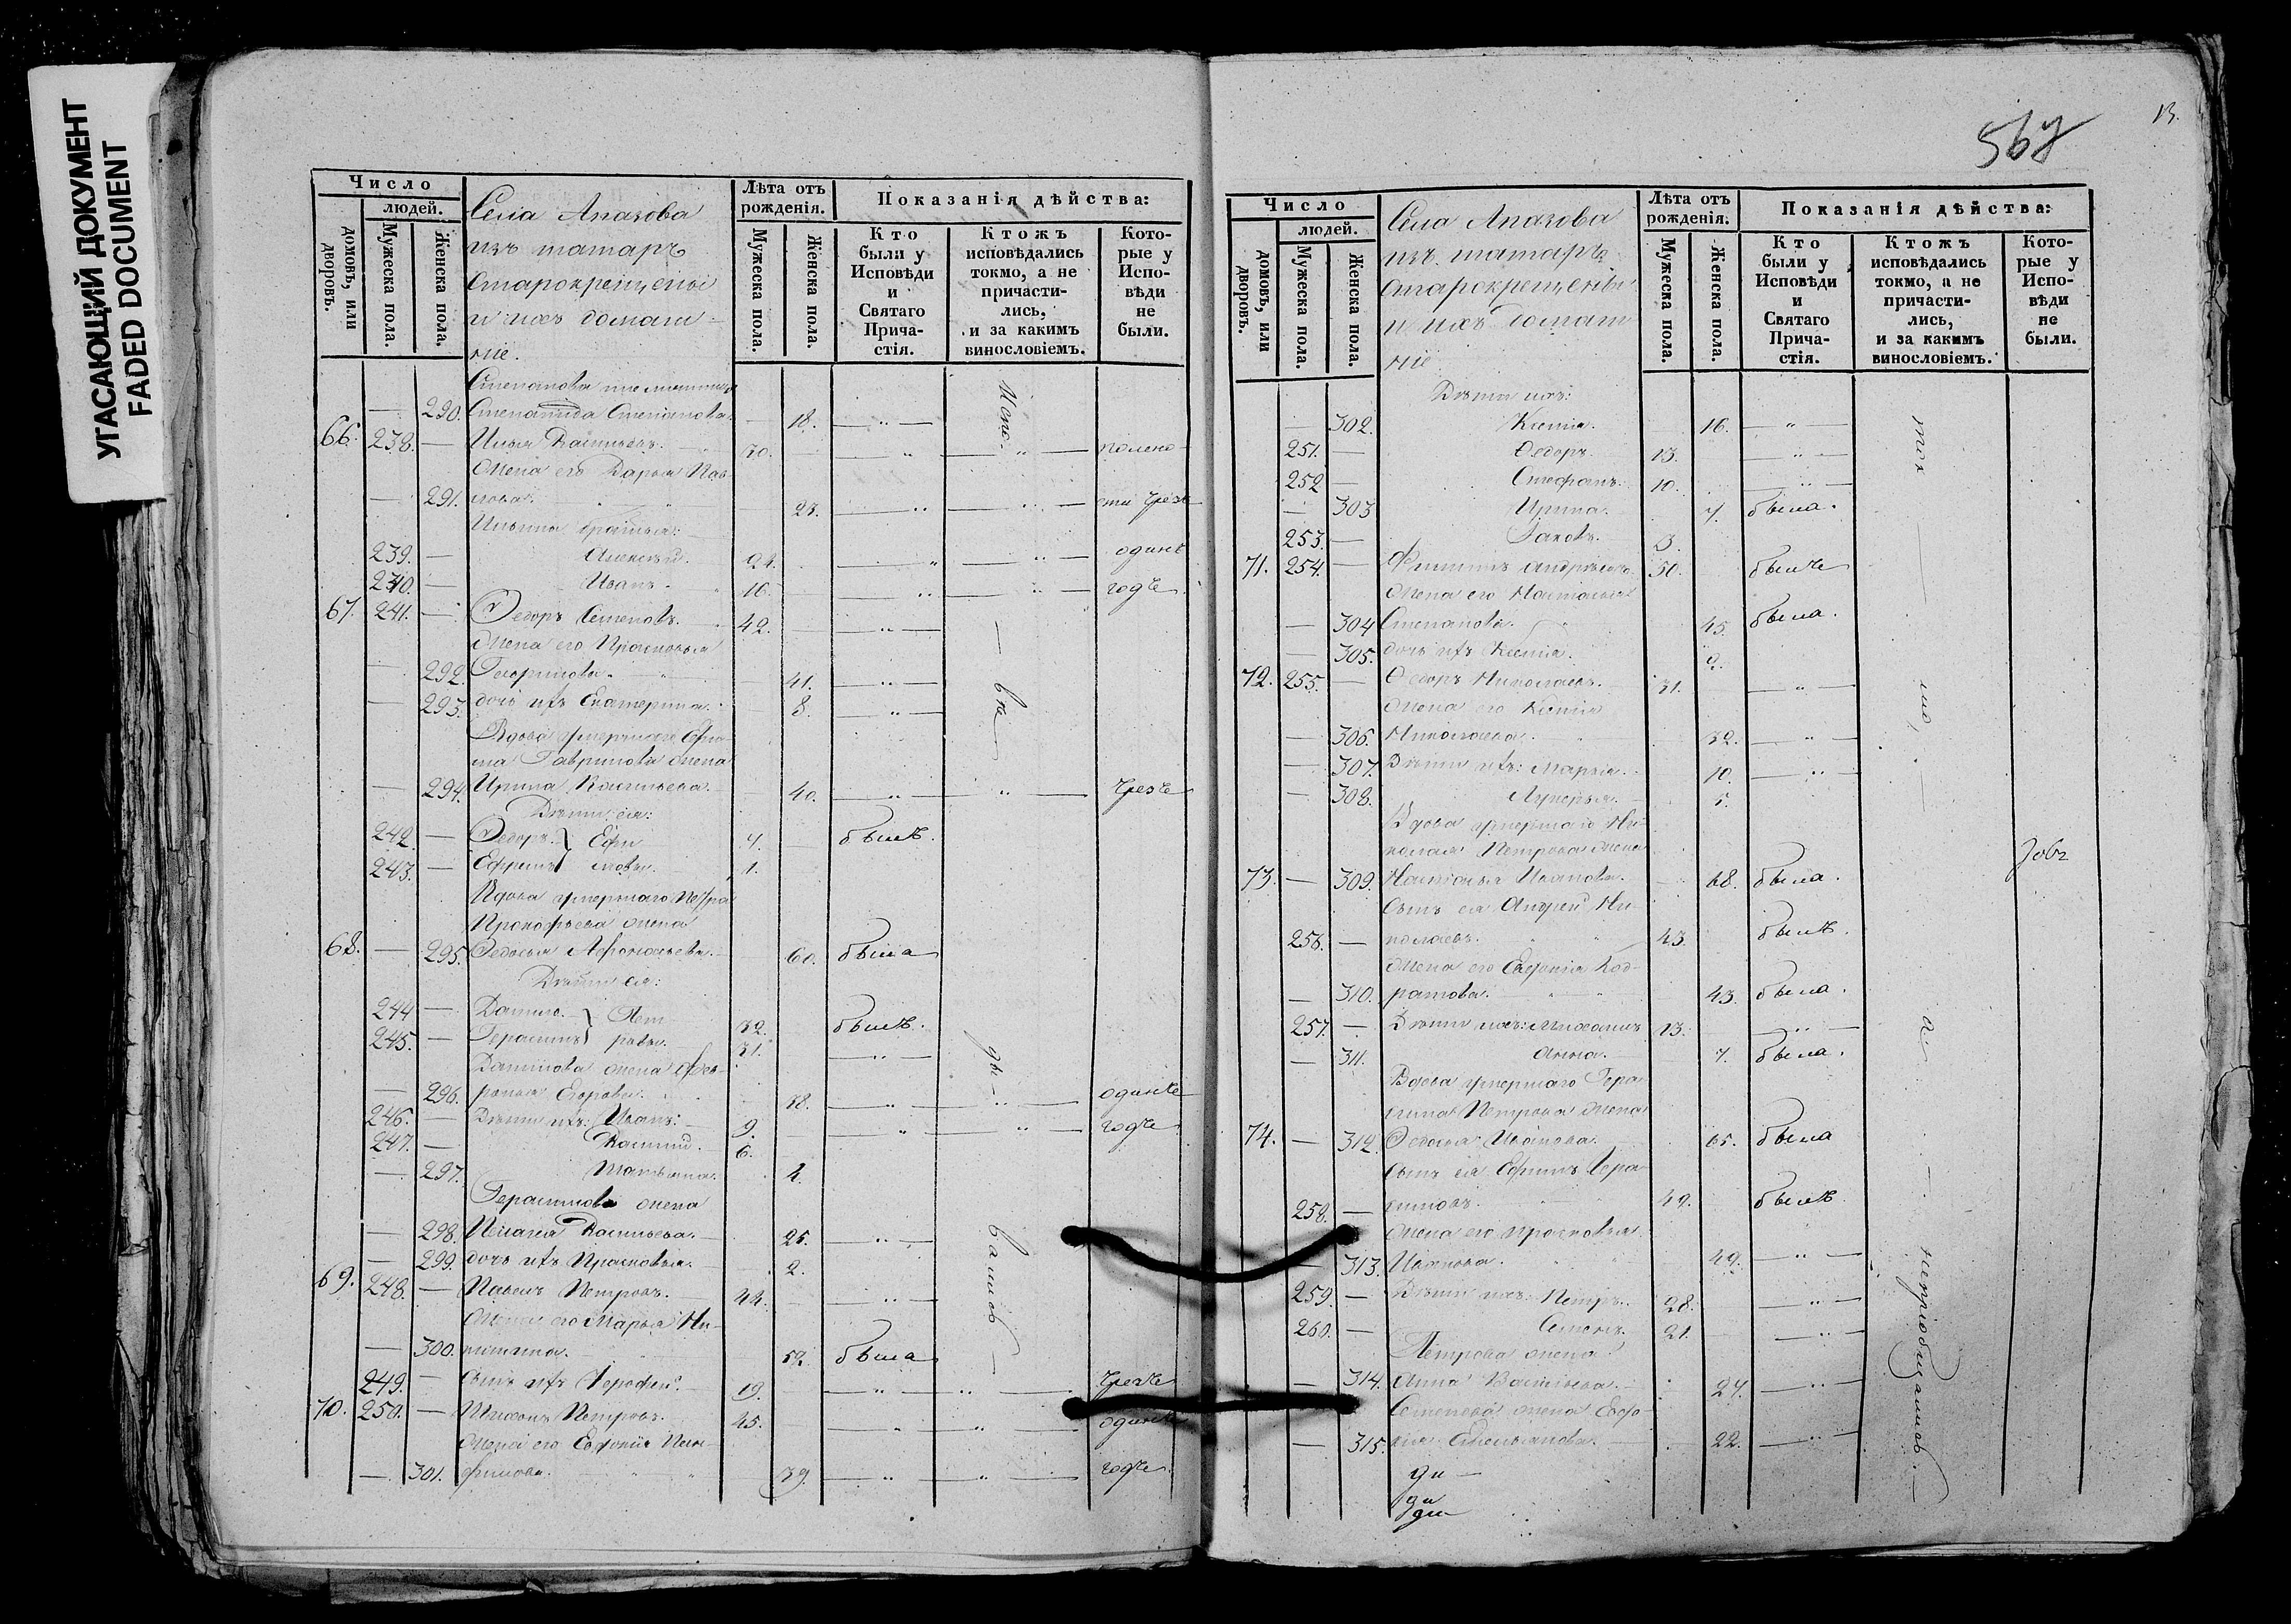 УГАСАЮЩИЙ ДОКУМЕНТ
FADED DOCUMENT
Число
людей.
домовъ, или дворовъ.
Мужеска пола.
Женска пола.
Села Апазова
изъ татаръ
старокрещены
и ихъ домаш-
ніе.
Лѣта отъ рожденія.
Мужеска пола.
Женска пола.
Показанія дѣйства:
Кто были у Исповѣди и Святаго Прича-стія.
Ктожъ исповѣдались токмо, а не причасти-лись, и за какимъ винословіемъ.
Кото-рые у Испо-вѣди не были.
Степанова
— 290. Степанида Степанова. 18. — „ —
66. 238. — Илья Васильевъ. 30. — „ — „ — полено-
Жена его Дарья Пав-
— 291. лова. 28. — „ — „ — сти чрезъ
Ильины братья:
239. — Алексѣй. 24. — „ — „ — одинъ
240. — Иванъ. 16. — „ — „ — годъ
67. 241. — Ѳедоръ Семеновъ. 42. — „ —
Жена его Прасковья
— 292. 41. — „ —
— 293. дочь ихъ Екатерина. 8. — „ —
Вдова умершаго Ефи-
ма Гаврилова жена
— 294. Ирина Васильева. 40. — „ — „ — чрезъ
Дѣти ея:
242. — Ѳедоръ } Ефи 4. былъ.
243. — Ефремъ } мовы. 1.
Вдова умершаго Петра
Прокофьева жена
68. — 295. Ѳедосья Афонасьева. 60. была
Дѣти ея:
244 — Данило } Пет 32. былъ.
245. — Герасимъ } ровы. 31. — „ —
Данилова жена Фев-
— 296. ронья Егорова. 38. — „ — „ — одинъ
246. — Дѣти ихъ: Иванъ: 9. — „ — „ — годъ
247. — Василій. 6.
— 297. Татьяна. 4.
Герасимова жена
— 298. Пелагея Васильева. 25. — „ —
— 299. дочь ихъ Прасковья. 2.
69. 248. — Павелъ Петровъ. 44. — „ —
Жена его Марья Ни-
— 300. китина. 52. была
249. — Сынъ ихъ Ерофей. 19. — „ — „ — чрезъ
70. 250. — Тихонъ Петровъ. 45. — „ — „ — одинъ
Жена его Евфонія
— 301. фимова. 39. — „ — „ — годъ.
Испо
вѣ
ды-
вались
567
13.
Число
людей.
домовъ, или дворовъ.
Мужеска пола
Женска пола.
Села Апазова
изъ татаръ
старокрещены
и ихъ домаш
ніе
Лѣта отъ рожденія.
Мужеска пола.
Женска пола.
Показанія дѣйства:
Кто были у Исповѣди и Святаго Прича-стія.
Ктожъ исповѣдались токмо, а не причасти-лись, и за какимъ винословіемъ.
Кото-рые у Испо-вѣди не были.
Дѣти ихъ:
— 302. Ксенія. 16. — „ —
251. — Ѳедоръ 13. — „ —
252 — Стефанъ. 10. — „ —
— 303 Ирина. 7. была.
253. — Іаковъ. 3.
71. 254. — Филипъ Андреевъ. 50. былъ
Жена его Настасья
— 304 Степанова. 45. была.
— 305. дочь ихъ Ксенія. 9.
72. 255. — Ѳедоръ Николаевъ. 31. — „ —
Жена его Ксенія
— 306. Николаева. 32. — „ —
— 307. Дѣти ихъ: Марья. 10. — „ —
— 308. Лукерья. 5.
Вдова умершаго Ни-
колая Петрова жена
73. — 309. Настасья Иванова. 68. была.
Сынъ ея Андрей Ни-
256. — колаевъ. 43. былъ.
Жена его Евфонія Код-
— 310. ратова. 43. была.
257. — Дѣти ихъ: Михаилъ 13. — „ —
— 311. Анна. 7. была.
Вдова умершаго Гера
сима Петрова жена
74. — 312. Ѳедосья Иванова. 65. была
Сынъ ея Ефимъ Гера
258. — симовъ. 49. былъ
Жена его Прасковья
— 313. Иванова. 49. — „ —
259. — Дѣти ихъ: Петръ. 28. — „ —
260. — Семенъ. 21. — „ —
Петрова жена
— 314. Анна Васильева. 27. — „ —
Семенова жена Евфо-
— 315. нія Емельянова. 22. — „ —